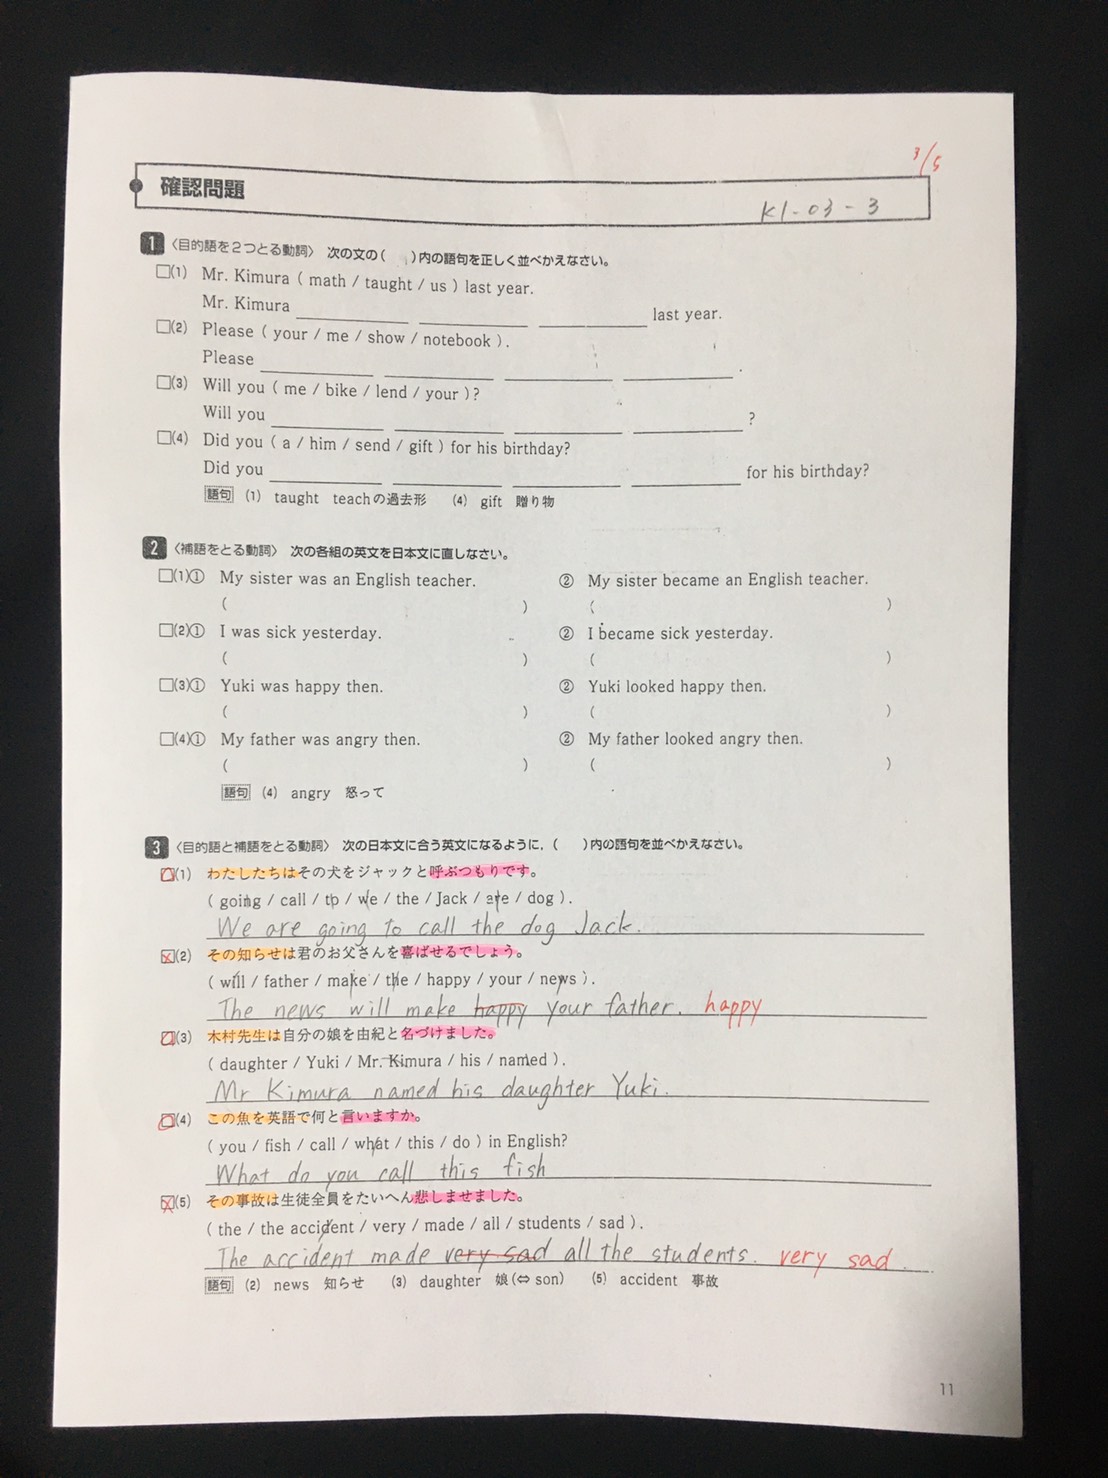 3/5
確認問題
K1-03-3
1 〈目的語を2つとる動詞〉 次の文の( )内の語句を正しく並べかえなさい。
□(1) Mr. Kimura ( math / taught / us ) last year.
Mr. Kimura ______ ______ ______ last year.
□(2) Please ( your / me / show / notebook ).
Please ______ ______ ______ ______.
□(3) Will you ( me / bike / lend / your )?
Will you ______ ______ ______ ______?
□(4) Did you ( a / him / send / gift ) for his birthday?
Did you ______ ______ ______ ______ for his birthday?
語句 (1) taught teachの過去形 (4) gift 贈り物
2 〈補語をとる動詞〉 次の各組の英文を日本文に直しなさい。
□(1)① My sister was an English teacher. ② My sister became an English teacher.
( ) ( )
□(2)① I was sick yesterday. ② I became sick yesterday.
( ) ( )
□(3)① Yuki was happy then. ② Yuki looked happy then.
( ) ( )
□(4)① My father was angry then. ② My father looked angry then.
( ) ( )
語句 (4) angry 怒って
3 〈目的語と補語をとる動詞〉 次の日本文に合う英文になるように,( )内の語句を並べかえなさい。
□(1) わたしたちはその犬をジャックと呼ぶつもりです。
( going / call / to / we / the / Jack / are / dog ).
We are going to call the dog Jack.
□(2) その知らせは君のお父さんを喜ばせるでしょう。
( will / father / make / the / happy / your / news ).
The news will make happy your father. happy
□(3) 木村先生は自分の娘を由紀と名づけました。
( daughter / Yuki / Mr. Kimura / his / named ).
Mr Kimura named his daughter Yuki.
□(4) この魚を英語で何と言いますか。
( you / fish / call / what / this / do ) in English?
What do you call this fish
□(5) その事故は生徒全員をたいへん悲しませました。
( the / the accident / very / made / all / students / sad ).
The accident made very sad all the students. very sad.
語句 (2) news 知らせ (3) daughter 娘(⇔son) (5) accident 事故
11